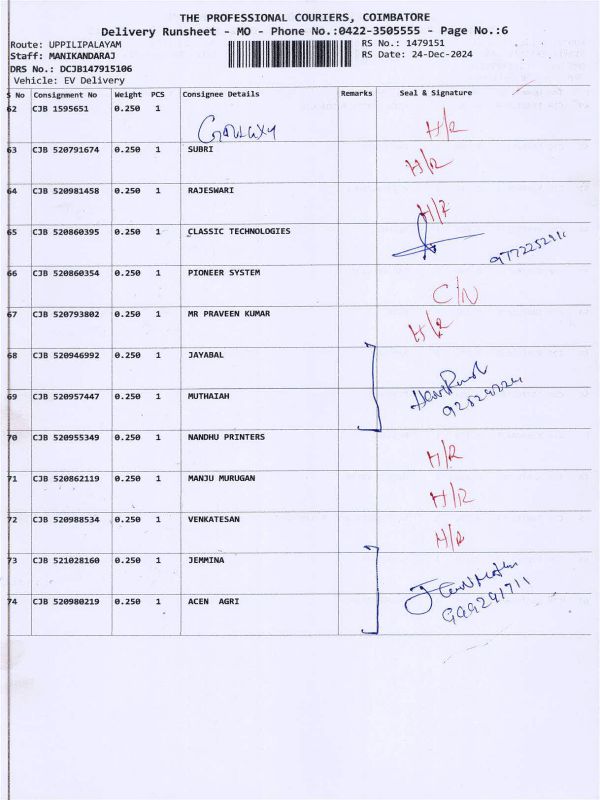 THE PROFESSIONAL COURIERS, COIMBATORE
Delivery Runsheet - MO - Phone No.:0422-3505555 - Page No.:6
Route: UPPILIPALAYAM RS No.: 1479151
Staff: MANIKANDARAJ RS Date: 24-Dec-2024
DRS No.: DCJB147915106
Vehicle: EV Delivery
S No Consignment No Weight PCS Consignee Details Remarks Seal & Signature
62 CJB 1595651 0.250 1 H/R
63 CJB 520791674 0.250 1 SUBRI H/R
64 CJB 520981458 0.250 1 RAJESWARI H/R
65 CJB 520860395 0.250 1 CLASSIC TECHNOLOGIES
66 CJB 520860354 0.250 1 PIONEER SYSTEM C/N
67 CJB 520793802 0.250 1 MR PRAVEEN KUMAR H/R
68 CJB 520946992 0.250 1 JAYABAL
69 CJB 520957447 0.250 1 MUTHAIAH
70 CJB 520955349 0.250 1 NANDHU PRINTERS H/R
71 CJB 520862119 0.250 1 MANJU MURUGAN H/R
72 CJB 520988534 0.250 1 VENKATESAN H/R
73 CJB 521028160 0.250 1 JEMMINA
74 CJB 520980219 0.250 1 ACEN AGRI